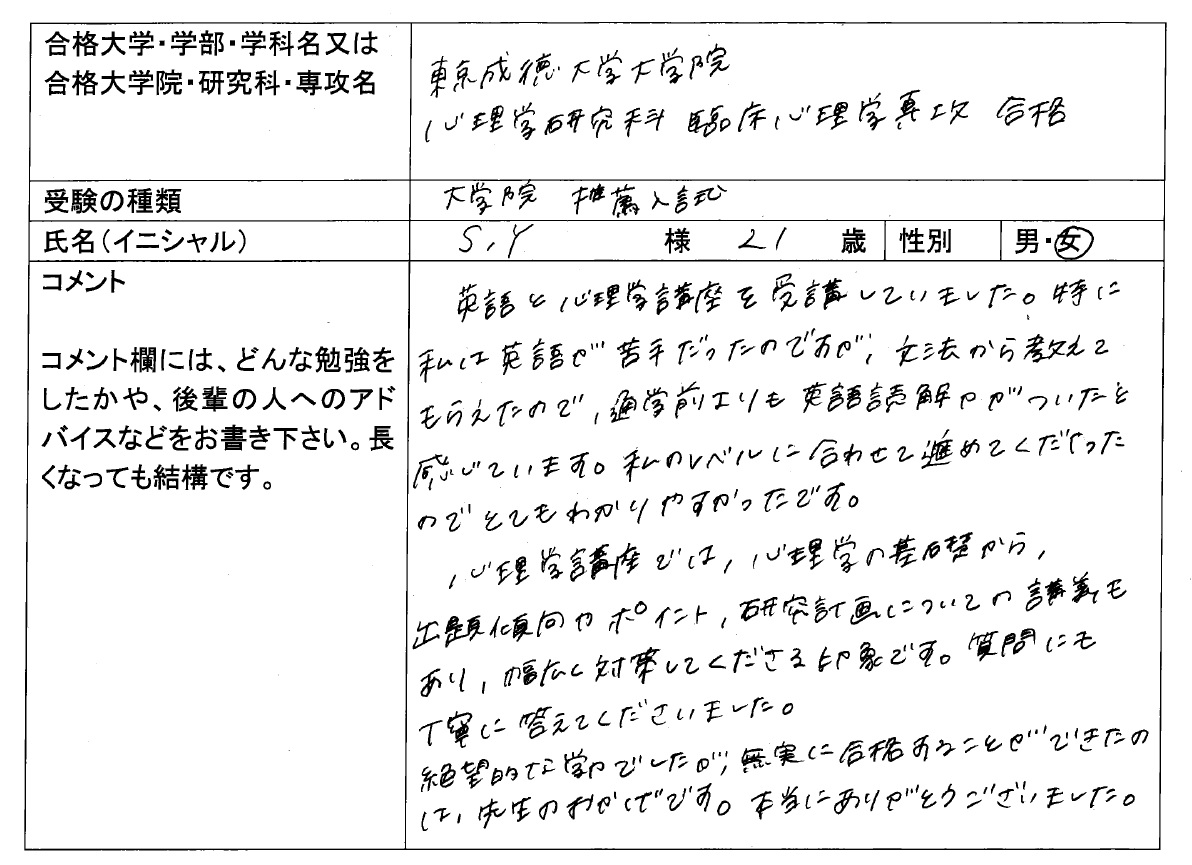 合格大学・学部・学科名又は
合格大学院・研究科・専攻名
東京成徳大学大学院
心理学研究科 臨床心理学専攻 合格
受験の種類
大学院 推薦入試
氏名(イニシャル)
S.Y 様 21 歳 性別 男・女
コメント
コメント欄には、どんな勉強を
したかや、後輩の人へのアド
バイスなどをお書き下さい。長
くなっても結構です。
英語と心理学講座を受講していました。特に
私は英語が苦手だったのですが、文法から教えて
もらえたので、通学前よりも英語読解力がついたと
感じています。私のレベルに合わせて進めてくださった
のでとてもわかりやすかったです。
心理学講座では、心理学の基礎から、
出題傾向やポイント、研究計画についての講義も
あり、幅広く対策してくださる印象です。質問にも
丁寧に答えてくださいました。
絶望的な学力でしたが、無実に合格することができたの
は、先生のおかげです。本当にありがとうございました。